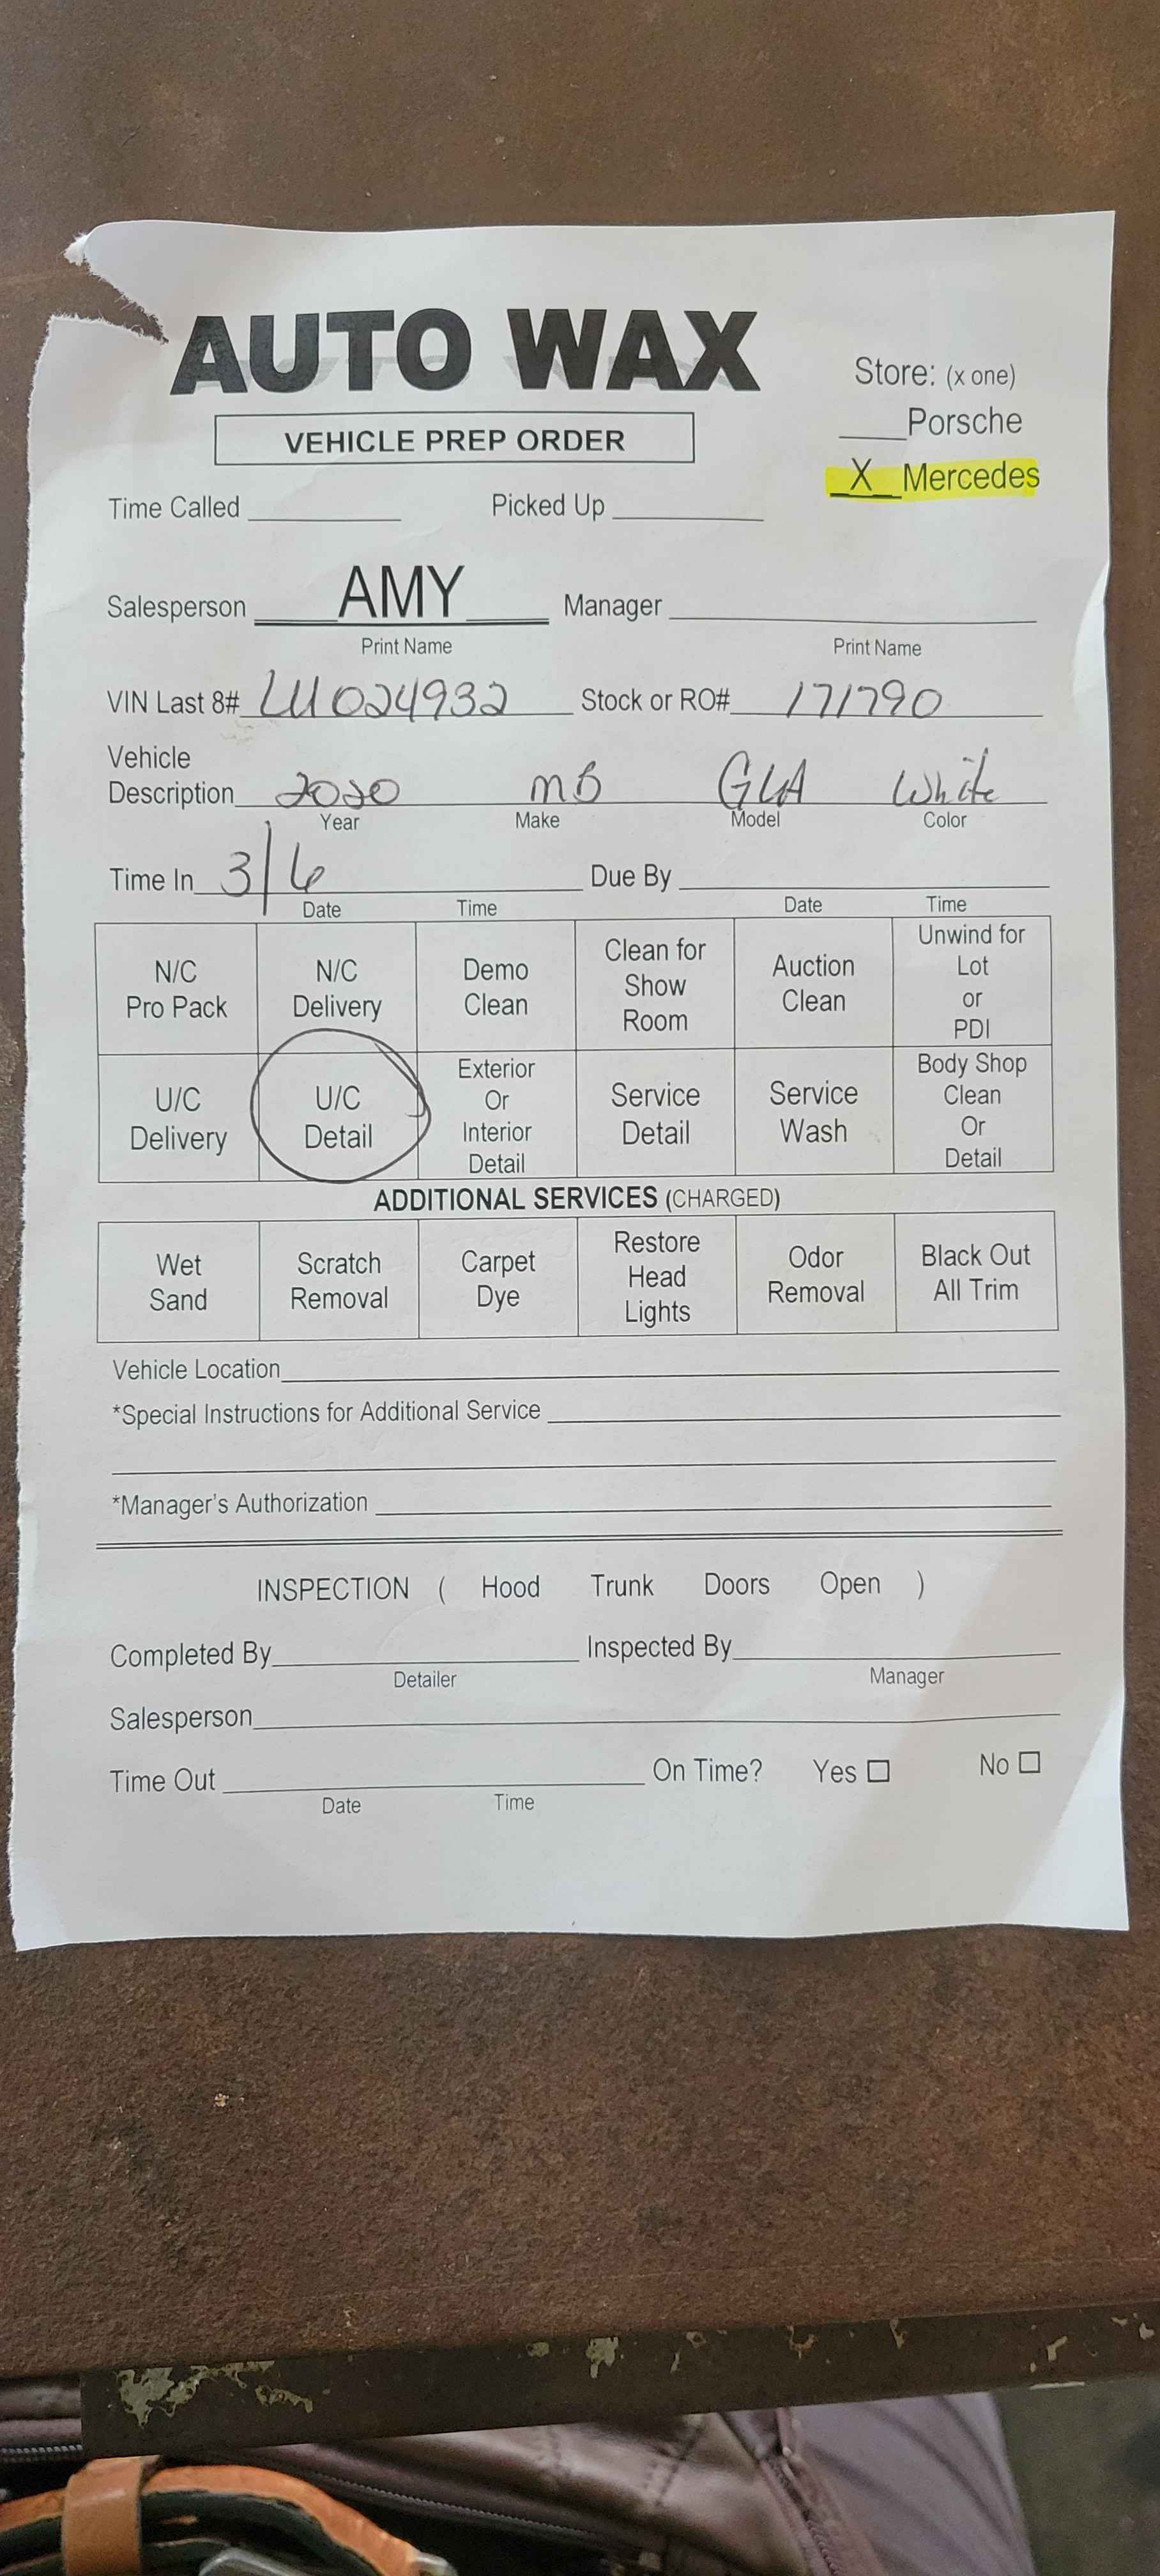 AUTO WAX
Store: (x one)
____Porsche
VEHICLE PREP ORDER
_X_Mercedes
Time Called ________ Picked Up ________
Salesperson ____AMY____ Manager ________
Print Name Print Name
VIN Last 8# LU024932 Stock or RO# 171790
Vehicle
Description 2020 MB GLA White
Year Make Model Color
Time In 3/6 Due By ________
Date Time Date Time
N/C Pro Pack
N/C Delivery
Demo Clean
Clean for Show Room
Auction Clean
Unwind for Lot or PDI
U/C Delivery
U/C Detail
Exterior Or Interior Detail
Service Detail
Service Wash
Body Shop Clean Or Detail
ADDITIONAL SERVICES (CHARGED)
Wet Sand
Scratch Removal
Carpet Dye
Restore Head Lights
Odor Removal
Black Out All Trim
Vehicle Location________
*Special Instructions for Additional Service ________
*Manager's Authorization ________
INSPECTION ( Hood Trunk Doors Open )
Completed By________ Inspected By________
Detailer Manager
Salesperson________
Time Out ________ On Time? Yes ☐ No ☐
Date Time